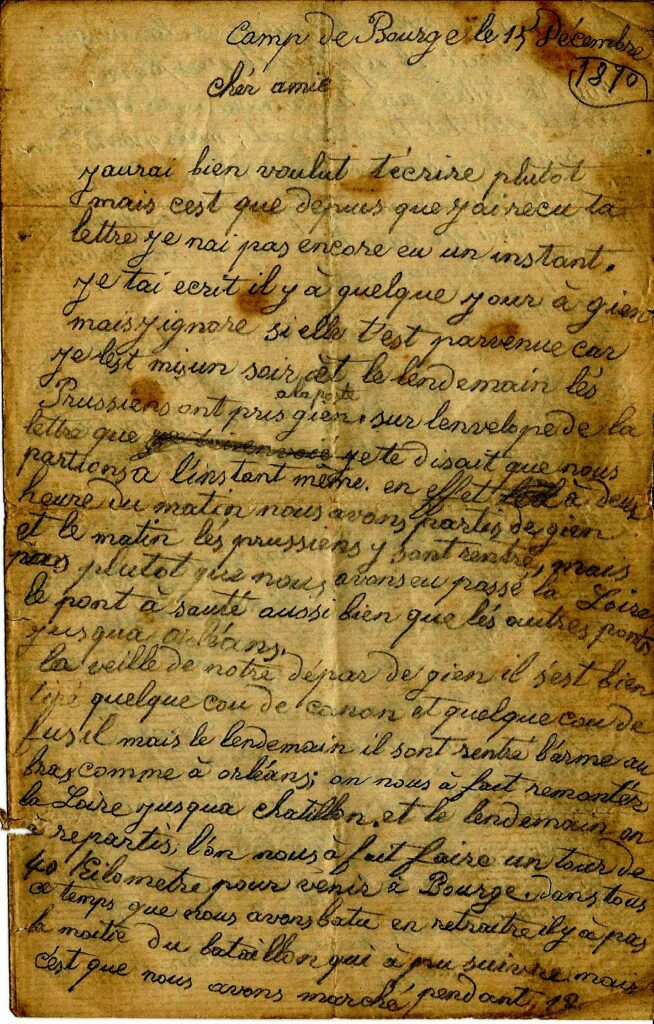 Camp de Bourge le 15 Décembre
1870
chér amie
yaurai bien voulut técrire plutot
mais cest que depuis que yai recu ta
lettre ye nai pas encore eu un instant.
ye tai ecrit il y à quelque your à gien
mais yignore si elle t'est parvenue car
ye l'est mis un soir et le lendemain lés
a la poste
Prussiens ont pris gien. sur lenvelope de la
lettre que ye te disait que nous
partions a l'instant même. en effet à deux
heure du matin nous avons partis de gien
et le matin lés prussiens y sont rentré, mais
pas plutot que nous avons eu passé la Loire
le pont à sauté aussi bien que lés autres ponts
yusqua orléans.
la veille de notre dépar de gien il s'est bien
tiré quelque cou de canon et quelque cou de
fusil mais le lendemain il sont rentré l'arme au
bras comme à orléans; on nous à fait remontér
la Loire yusqua chatillon. et le lendemain on
à repartis, l'on nous à fait faire un tour de
40 Kilometre pour vénir à Bourge. dans tous
ce temps que nous avons batu en retraitre il y à pas
la moitié du bataillon qui à pu suivre mais
c'est que nous avons marché pendant 12